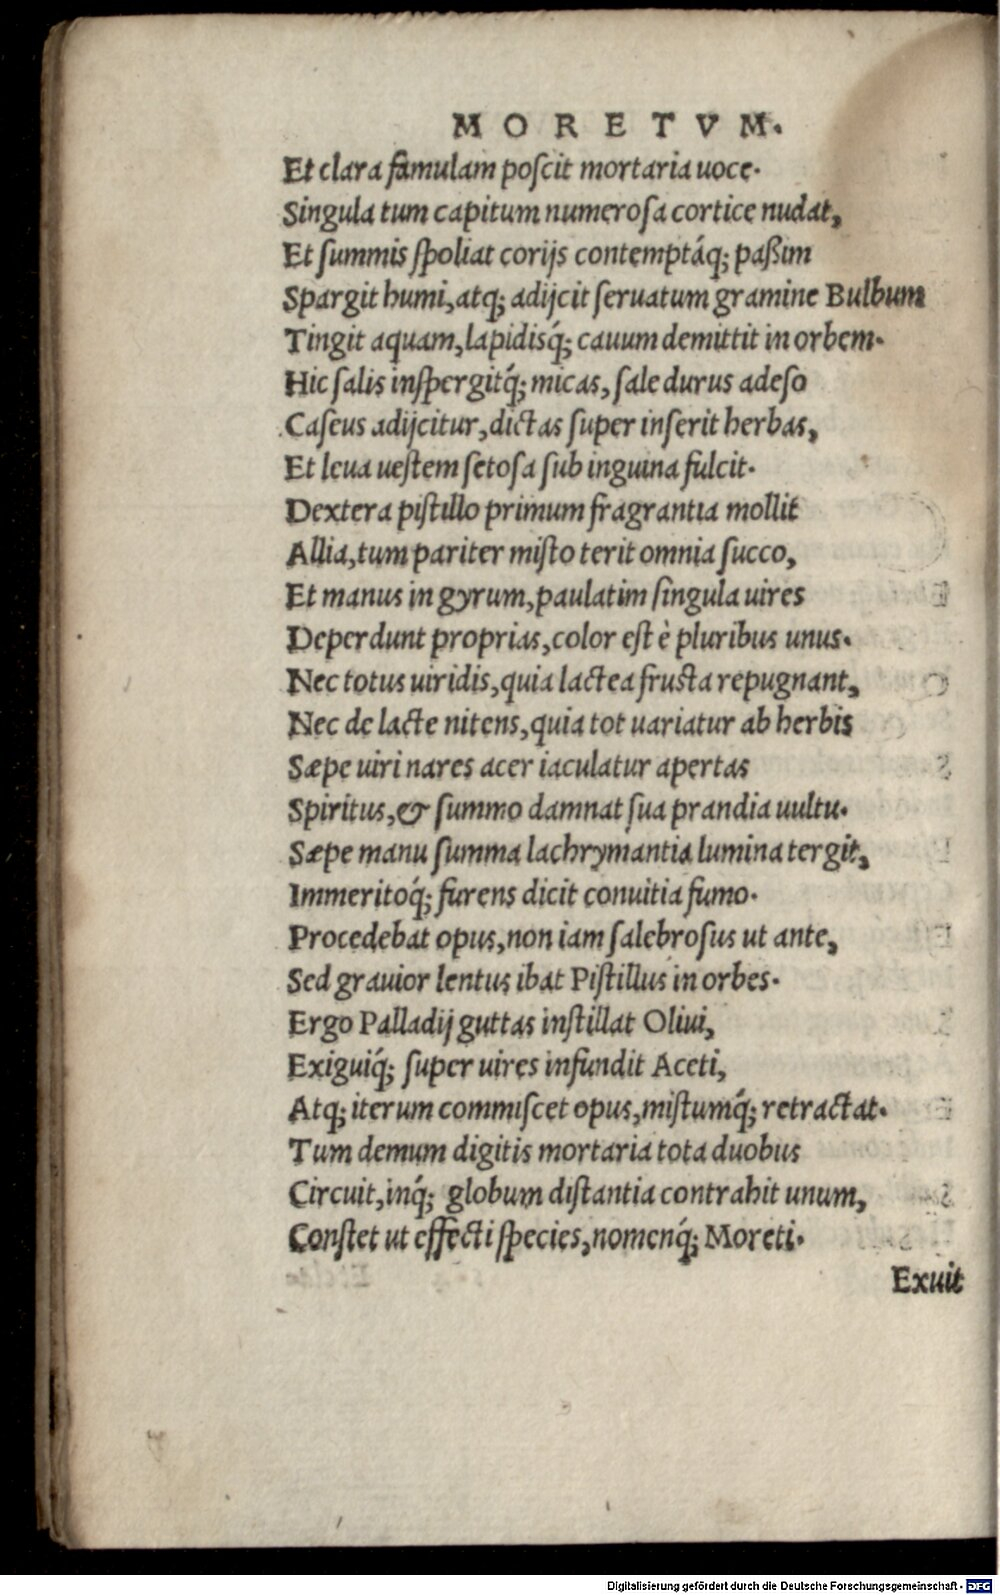 MORETVM.
Et clara famulam poſcit mortaria uoce.
Singula tum capitum numeroſa cortice nudat,
Et ſummis ſpoliat corijs contemptáq; paßim
Spargit humi, atq; adijcit ſeruatum gramine Bulbum
Tingit aquam, lapidisq́; cauum demittit in orbem.
Hic ſalis inſpergitq́; micas, ſale durus adeſo
Caſeus adijcitur, dictas ſuper inſerit herbas,
Et leua ueſtem ſetoſa ſub inguina fulcit.
Dextera piſtillo primum fragrantia mollit
Allia, tum pariter miſto terit omnia ſucco,
Et manus in gyrum, paulatim ſingula uires
Deperdunt proprias, color eſt è pluribus unus.
Nec totus uiridis, quia lactea fruſta repugnant,
Nec de lacte nitens, quia tot uariatur ab herbis
Sæpe uiri nares acer iaculatur apertas
Spiritus, & ſummo damnat ſua prandia uultu.
Sæpe manu ſumma lachrymantia lumina tergit,
Immeritoq́; furens dicit conuitia fumo.
Procedebat opus, non iam ſalebroſus ut ante,
Sed grauior lentus ibat Piſtillus in orbes.
Ergo Palladij guttas inſtillat Oliui,
Exiguiq́; ſuper uires infundit Aceti,
Atq; iterum commiſcet opus, miſtumq́; retractat.
Tum demum digitis mortaria tota duobus
Circuit, inq́; globum diſtantia contrahit unum,
Conſtet ut effecti ſpecies, nomenq́; Moreti.
Exuit
Digitalisierung gefördert durch die Deutsche Forschungsgemeinschaft - DFG